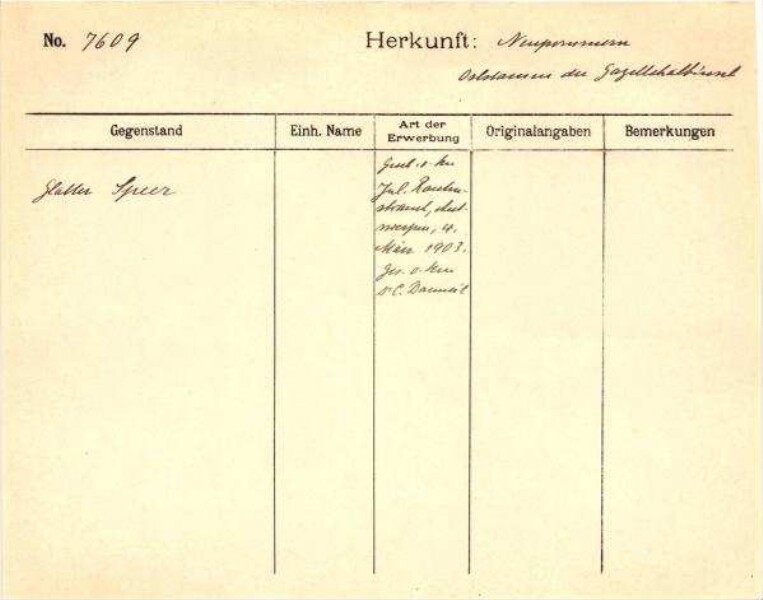 No. 7609 Herkunft: Neupommern
Oststamm der Gazellehalbinsel
Gegenstand Einh. Name Art der Erwerbung Originalangaben Bemerkungen
Glatter Speer
Gesch. v. Hrn
Jul. Rauten-
strauch, Ant-
werpen, 4.
März 1903.
Ges. v. Hrn
Dr C. Danneil